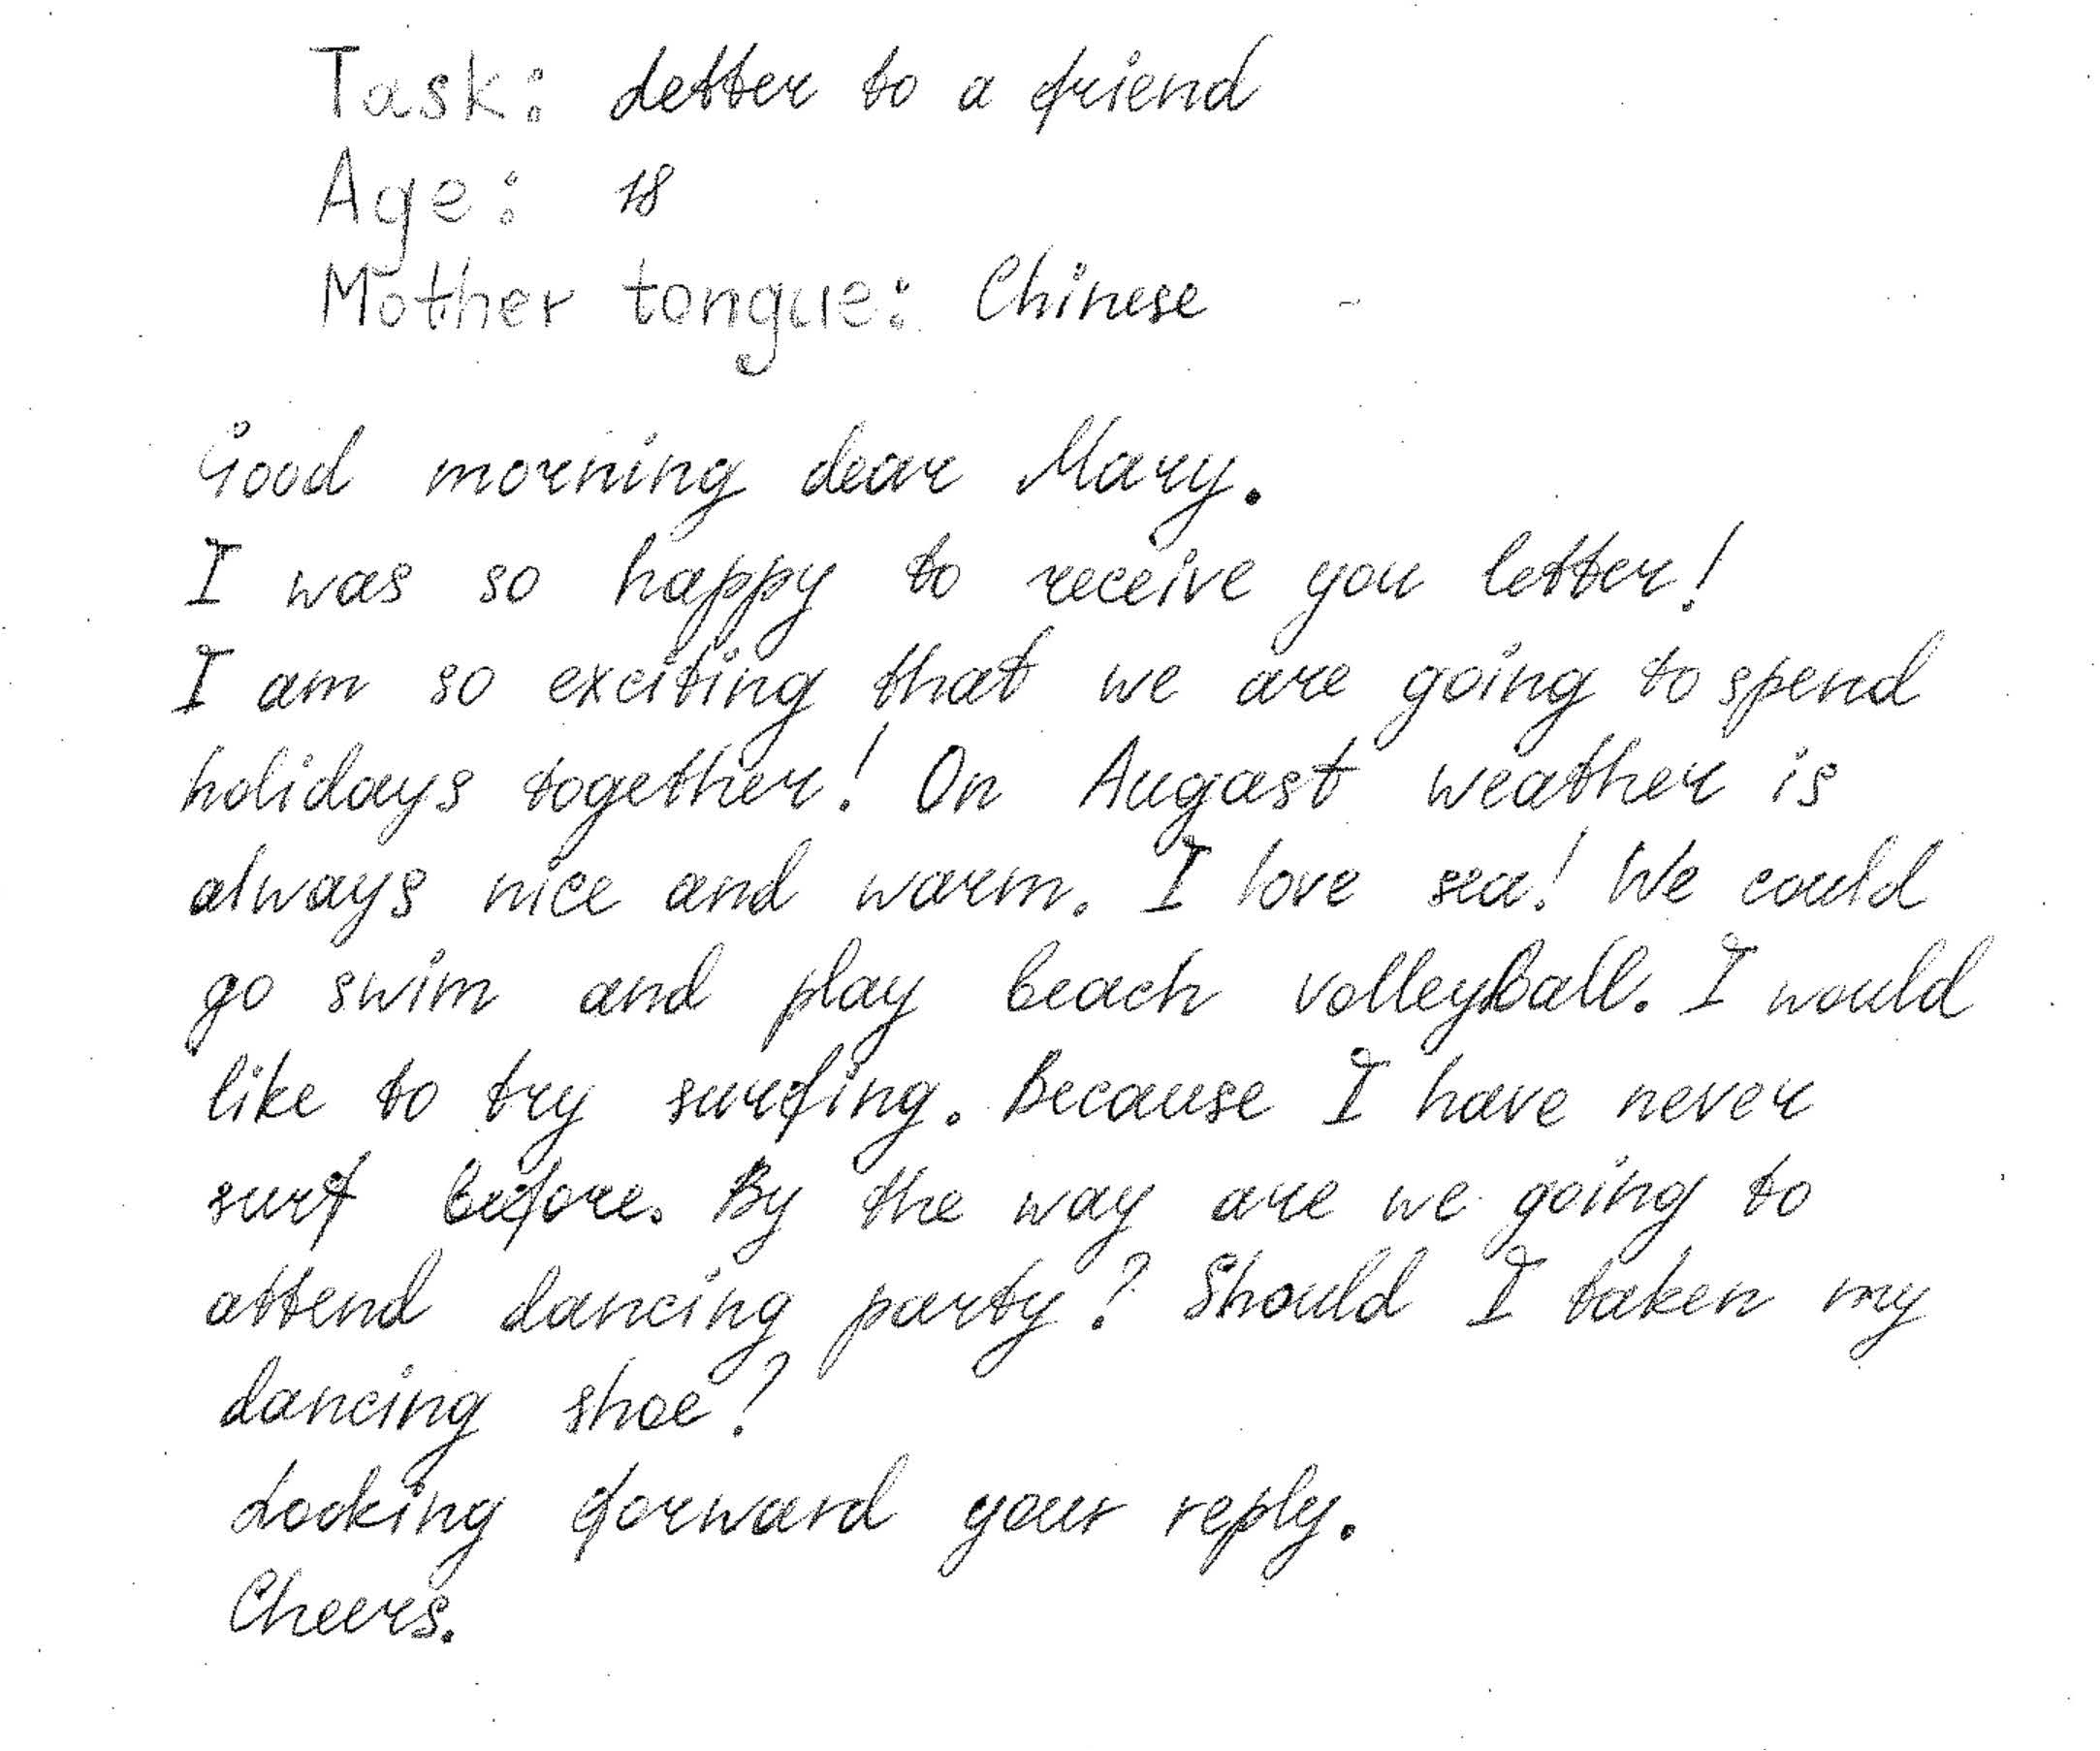 Task: Letter to a friend
Age: 18
Mother tongue: Chinese
Good morning dear Mary.
I was so happy to receive you letter!
I am so exciting that we are going to spend
holidays together! On Augast weather is
always nice and warm. I love sea! We could
go swim and play beach volleyball. I would
like to try surfing. Because I have never
surf before. By the way are we going to
attend dancing party? Should I taken my
dancing shoe?
Looking forward your reply.
Cheers.